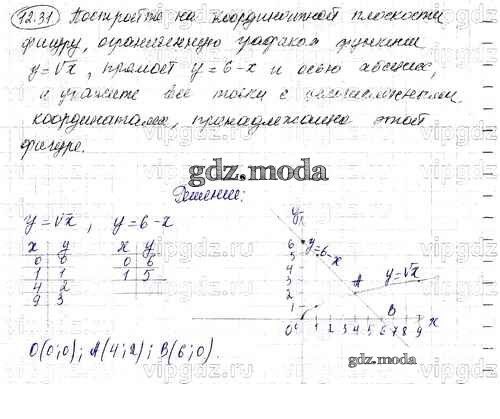 12.31 Постройте на координатной плоскости
фигуру, ограниченную графиком функции
y=√x, прямой y=6-x и осью абсцисс,
и укажите все точки с целочисленными
координатами, принадлежащие этой
фигуре.
gdz.moda
Решение:
y=√x, y=6-x
x y x y
0 0 0 6
1 1 1 5
4 2
9 3
O(0;0); A(4;2); B(6;0).
y
6 y=6-x
5
4
3 A y=√x
2
1 B
0 1 2 3 4 5 6 7 8 9 x
gdz.moda